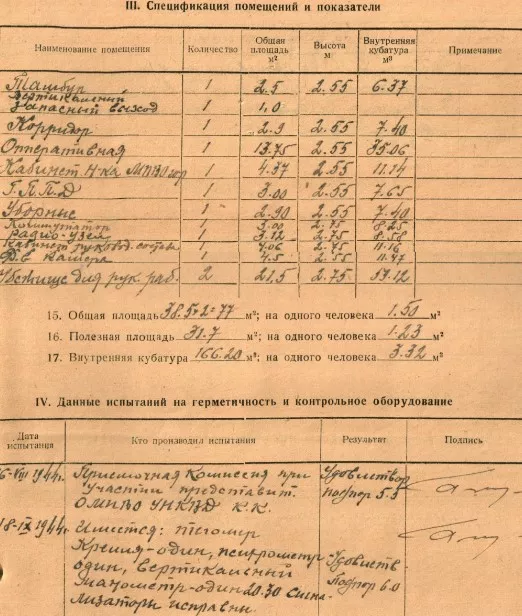 III. Спецификация помещений и показатели
Наименование помещения Количество Общая площадь м² Высота м Внутренняя кубатура м³ Примечание
Тамбур 1 2.5 2.55 6.37
Вертикальный
запасный выход 1 1,0
Корридор 1 2.9 2.55 7.40
Оперативная 1 13.75 2.55 35.06
Кабинет Н-ка МПВО 1 4.37 2.55 11.14
Г.П.П.Д 1 3.00 2.55 7.65
Уборные 1 2.90 2.55 7.40
Коммутатор 1 3.00 2.75 8.25
Радио-узел 1 3.12 2.75 8.58
Кабинет руковод. состава 1 4.06 2.75 11.16
Ф.В камера 1 4.5 2.55 11.47
Убежище для рук. раб. 2 21.5 2.75 59.12
15. Общая площадь 38.5×2=77 м²; на одного человека 1.50 м²
16. Полезная площадь 31.7 м²; на одного человека 1.23 м²
17. Внутренняя кубатура 166.20 м³; на одного человека 3.32 м³
IV. Данные испытаний на герметичность и контрольное оборудование
Дата испытания Кто производил испытания Результат Подпись
6-VIII 1944г. Приемочная Комиссия при Удовлетвор
участии представит. подпор 5.5
ОМПВО УНКВД К.К.
18-IX 1944г. Имеется: тягомер
Креля-один, психрометр Удовлетв.
один, вертикальный подпор 6.0
манометр-один 20.30 сигна-
лизаторы исправны.